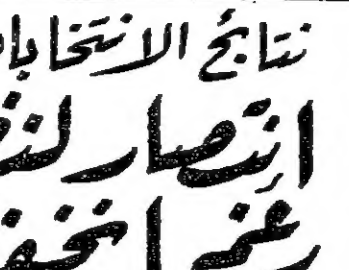 نتائج الانتخابا
انتصار لنـ
رغم انخفـ